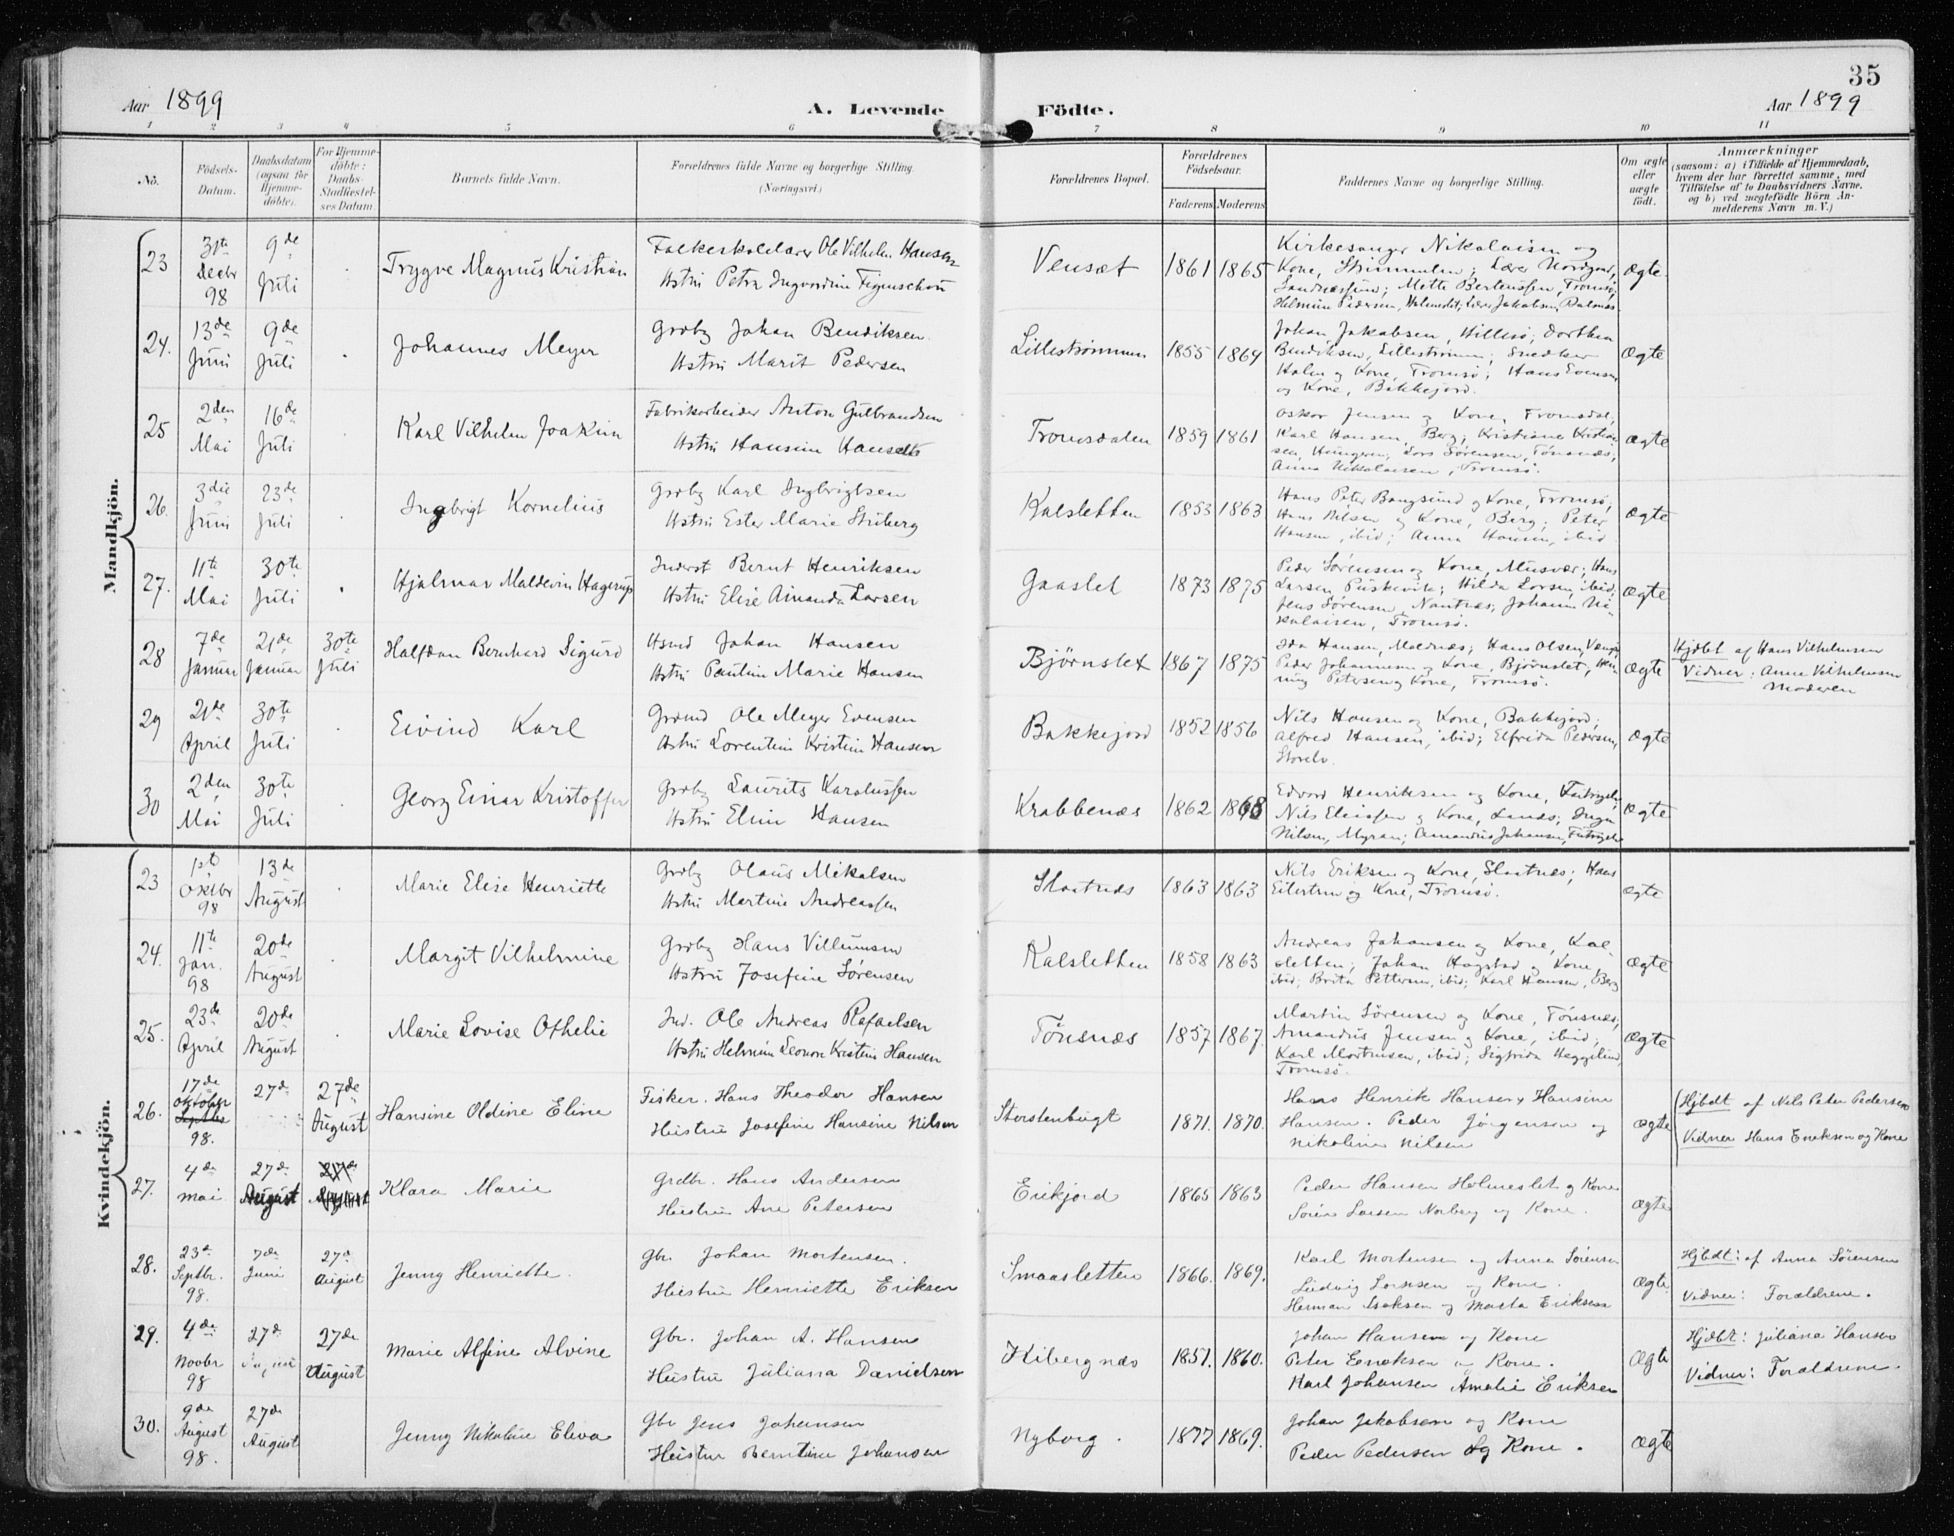 35
Aar 1899
A. Levende Födte.
Aar 1899
1 2 3 4 5 6 7 8 9 10 11
No.
Födsels-Datum.
Daabsdatum (ogsaa for Hjemme-döbte).
For Hjemme-döbte: Daabs-Stadfæstel-ses Datum.
Barnets fulde Navn.
Forældrenes fulde Navne og borgerlige Stilling. (Næringsvei.)
Forældrenes Bopæl.
Forældrenes Födselsaar.
Faderens Moderens
Faddernes Navne og borgerlige Stilling.
Om ægte eller uægte födt.
Anmærkninger
(saasom: a) i Tilfælde af Hjemmedaab,
hvem der har forrettet samme, med
Tilföielse af to Daabsvidners Navne,
og b) ved uægtefödte Börn An-
melderens Navn m. V.)
Mandkjön.
23 31te Decbr 98 9de Juli Trygve Magnus Kristian
Folkeskolelærer Ole Vilhelm Hansen
Hstru Petra Ingvardine Figenschou
Vensæt 1861 1865
Kirkesanger Nikolaisen og
Kone, Lærer Nordgaard,
Mette Berteussen, Tromsø,
Helmine Pedersen, Lærer Jakobsen,
Ægte
24. 13de Juni 9de Juli Johannes Meyer
Grdbr Johan Bendiksen
Hstru Marit Pedersen
Lillestrømmen 1855 1869
Johan Jakobsen, Hillesø; Dorthea
Bendiksen, Lillestrømmen; Snedker
Holm og Kone, Tromsø; Hans Evensen
og Kone, Bakkejord.
Ægte
25 2den Mai 16de Juli Karl Vilhelm Joakim
Fabrikarbeider Anton Gulbrandsen
Hstru Hansine
Tromsdalen 1859 1861
Oskar Jensen og Kone, Tromsdal,
Karl Hansen, Berg; Kristiane Kristian-
sen, Lars Sørensen, Tønsnæs,
Anna Nikolaisen, Tromsø.
Ægte
26. 3die Juni 23de Juli Ingbrigt Kornelius
Grdbr Karl Ingbrigtsen
Hstru Ester Marie Stuberg
Kalsletten 1853 1863
Hans Peter Bangsund og Kone, Tromsø;
Hans Nilsen og Kone, Berg; Peter
Hansen, ibid; Anna Hansen, ibid.
Ægte
27. 11te Mai 30te Juli Hjalmar Maldevin Hagerup
Inderst Bernt Henriksen
Hstru Elise Amanda Larsen
Gaaslet 1873 1875
Peder Sørensen og Kone, Musvær; Hans
Larsen Hilda Larsen, ibid,
Jens Sørensen, Johanne Ni-
kolaisen, Tromsø.
Ægte
28 7de Januar 21de Januar 30te Juli Halfdan Bernhard Sigurd
Hsmd Johan Hansen
Hstru Pauline Marie Hansen
Bjørnslet 1867 1875
Ida Hansen, Hans Olsen,
Peder Johannesen og Kone, Bjørnslet, Hen-
ning Petersen og Kone, Tromsø.
Ægte
Hjdbt af Hans Vilhelmsen
Vidner: Anne Vilhelmsen
Moderen
29 21de April 30te Juli Eivind Karl
Grdmd Ole Meyer Evensen
Hstru Lorentine Kristine Hansen
Bakkejord 1852 1856
Nils Hansen og Kone, Bakkejord;
Alfred Hansen, ibid; Elfrida Pedersen,
Storelv.
Ægte
30 2den Mai 30te Juli Georg Einar Kristoffer
Grdbr Laurits Karolussen
Hstru Eline Hansen
Krabbenæs 1862 1868
Edvard Henriksen og Kone,
Nils Eliassen og Kone, Inga
Nilsen, Myran; Amandus Johansen,
Ægte
Kvindekjön.
23 1st Oktbr 98 13de August Marie Elise Henriette
Grdbr Olaus Mikalsen
Hstru Martine Andreassen
Slaatnæs 1863 1863
Nils Eriksen og Kone, Slaatnæs; Hans
Eilertsen og Kone, Tromsø.
Ægte
24. 11te Jan. 98 20de August Margit Vilhelmine
Grdbr Hans Villumsen
Hstru Josefine Sørensen
Kalsletten 1858 1863
Andreas Johansen og Kone, Kal-
sletten; Johan Hogstad og Kone,
ibid; Brita Pettersen, ibid; Karl Hansen, Berg
Ægte
25. 23de April 20de August Marie Lovise Othelie
Ind. Ole Andreas Rafaelsen
Hstru Helmine Leonore Kristine Hansen
Tönsnæs 1857 1867.
Martin Sørensen og Kone, Tønsnæs;
Amandus Jensen og Kone, ibid;
Karl Mortensen, ibid; Sigfrida Heggelund,
Tromsø.
Ægte
26. 17de Oktober Septbr 98. 27de 27de August Hansine Oldine Eline
Fisker. Hans Theodor Hansen
Hustru Josefine Hansine Nilsen
Storstenbugt 1871. 1870.
Hans Henrik Hansen Hansine
Hansen. Peder Jørgensen og
Nikoline Nilsen
Ægte
Hjbdt af Nils Peter Pedersen
Vidner Hans Eriksen og Kone
27. 4de Mai 27de August 27de August Klara Marie
Grdbr. Hans Andersen
Hustru Ane Petersen
Erikjord 1865 1863
Peder Hansen Holmeslet og Kone
Sören Larsen Norberg og Kone.
Ægte
28. 23de Septbr. 98. 7de Juni 27de August Jenny Henriette.
Gbr. Johan Mortensen.
Hustru Henriette Eriksen
Smaasletten 1866. 1869.
Karl Mortensen og Anna Sörensen
Ludvig Larssen og Kone.
Herman Isaksen og Marta Eriksen
Ægte
Hjbdt: af Anna Sörensen
Vidner: Forældrene.
29. 4de Novbr 98 27de 27de August Marie Alfine Alvine
Gbr. Johan A. Hansen
Hustru Juliana Danielsen
Kibergnæs 1857. 1860.
Johan Hansen og Kone
Peter Eriksen og Kone.
Karl Johansen Amalie Eriksen
Ægte
Hjdbt: Juliana Hansen
Vidner: Forældrene.
30. 9de August 98. 27de August Jenny Nikoline Eliva
Gbr Jens Johansen
Hustru Berntine Johansen
Nyborg. 1877 1869.
Johan Jakobsen og Kone
Peder Pedersen og Kone.
Ægte